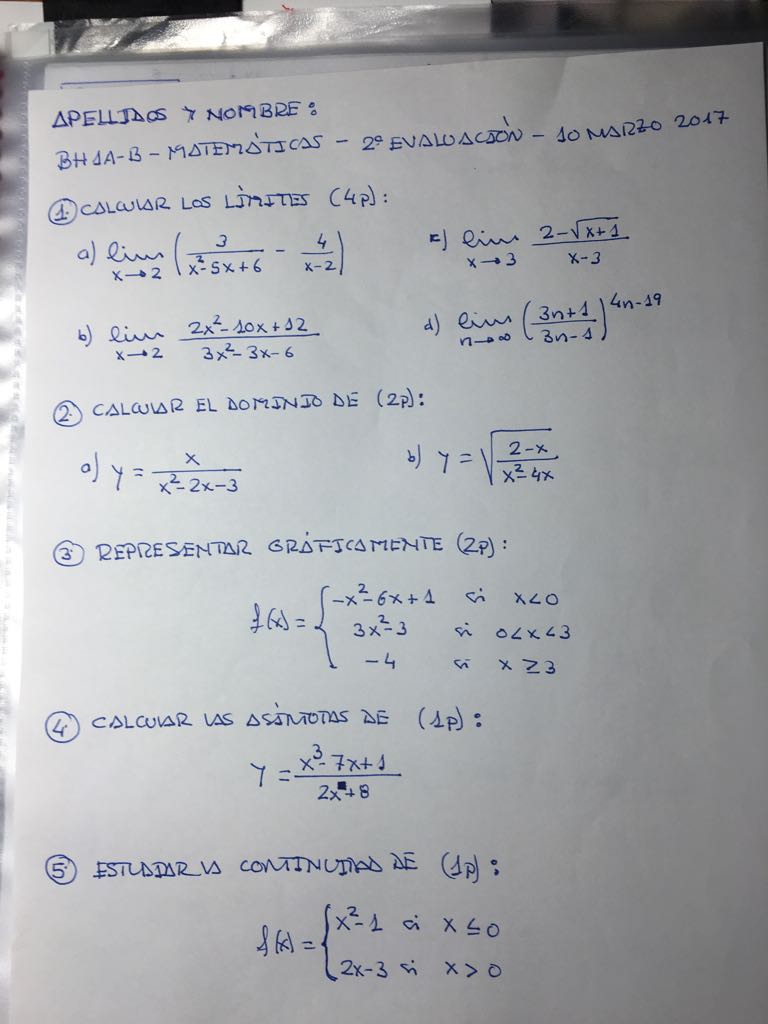 APELLIDOS Y NOMBRE:
BH1A-B - MATEMÁTICAS - 2ª EVALUACIÓN - 10 MARZO 2017
① CALCULAR LOS LÍMITES (4p):
a) lim x→2 (3/(x²-5x+6) - 4/(x-2))
c) lim x→3 (2-√(x+1))/(x-3)
b) lim x→2 (2x²-10x+12)/(3x²-3x-6)
d) lim n→∞ ((3n+1)/(3n-1))^(4n-19)
② CALCULAR EL DOMINIO DE (2p):
a) y = x/(x²-2x-3)
b) y = √((2-x)/(x²-4x))
③ REPRESENTAR GRÁFICAMENTE (2p):
f(x) = { -x²-6x+1 si x<0
3x²-3 si 0<x<3
-4 si x ≥ 3
④ CALCULAR LAS ASÍNTOTAS DE (1p):
y = (x³-7x+1)/(2x+8)
⑤ ESTUDIAR LA CONTINUIDAD DE (1p):
f(x) = { x²-1 si x ≤ 0
2x-3 si x > 0